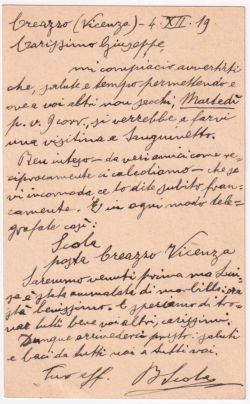 Creazzo (Vicenza) - 4. XII. 19
Carissimo Giuseppe,
mi compiaccio avvertirti
che, salute e tempo permettendo e
ove a voi altri non secchi, Martedì
p. v. 9 corr, si verrebbe a farvi
una visitina a Sanguinetto.
Ben inteso - da veri amici come re-
ciprocamente ci calcoliamo - che se
vi incomoda, ce lo dite subito fran-
camente. E in ogni modo dele-
grafate così:
Scola
posta Creazzo Vicenza
Saremmo venuti prima ma Lui-
sa è stata ammalata di morbillo; ora
sta benissimo. E speriamo di tro-
var tutti bene voi altri, carissimi.
Dunque arrivederci presto. Saluti
e baci da tutti noi a tutti voi.
Tuo aff. B Scola